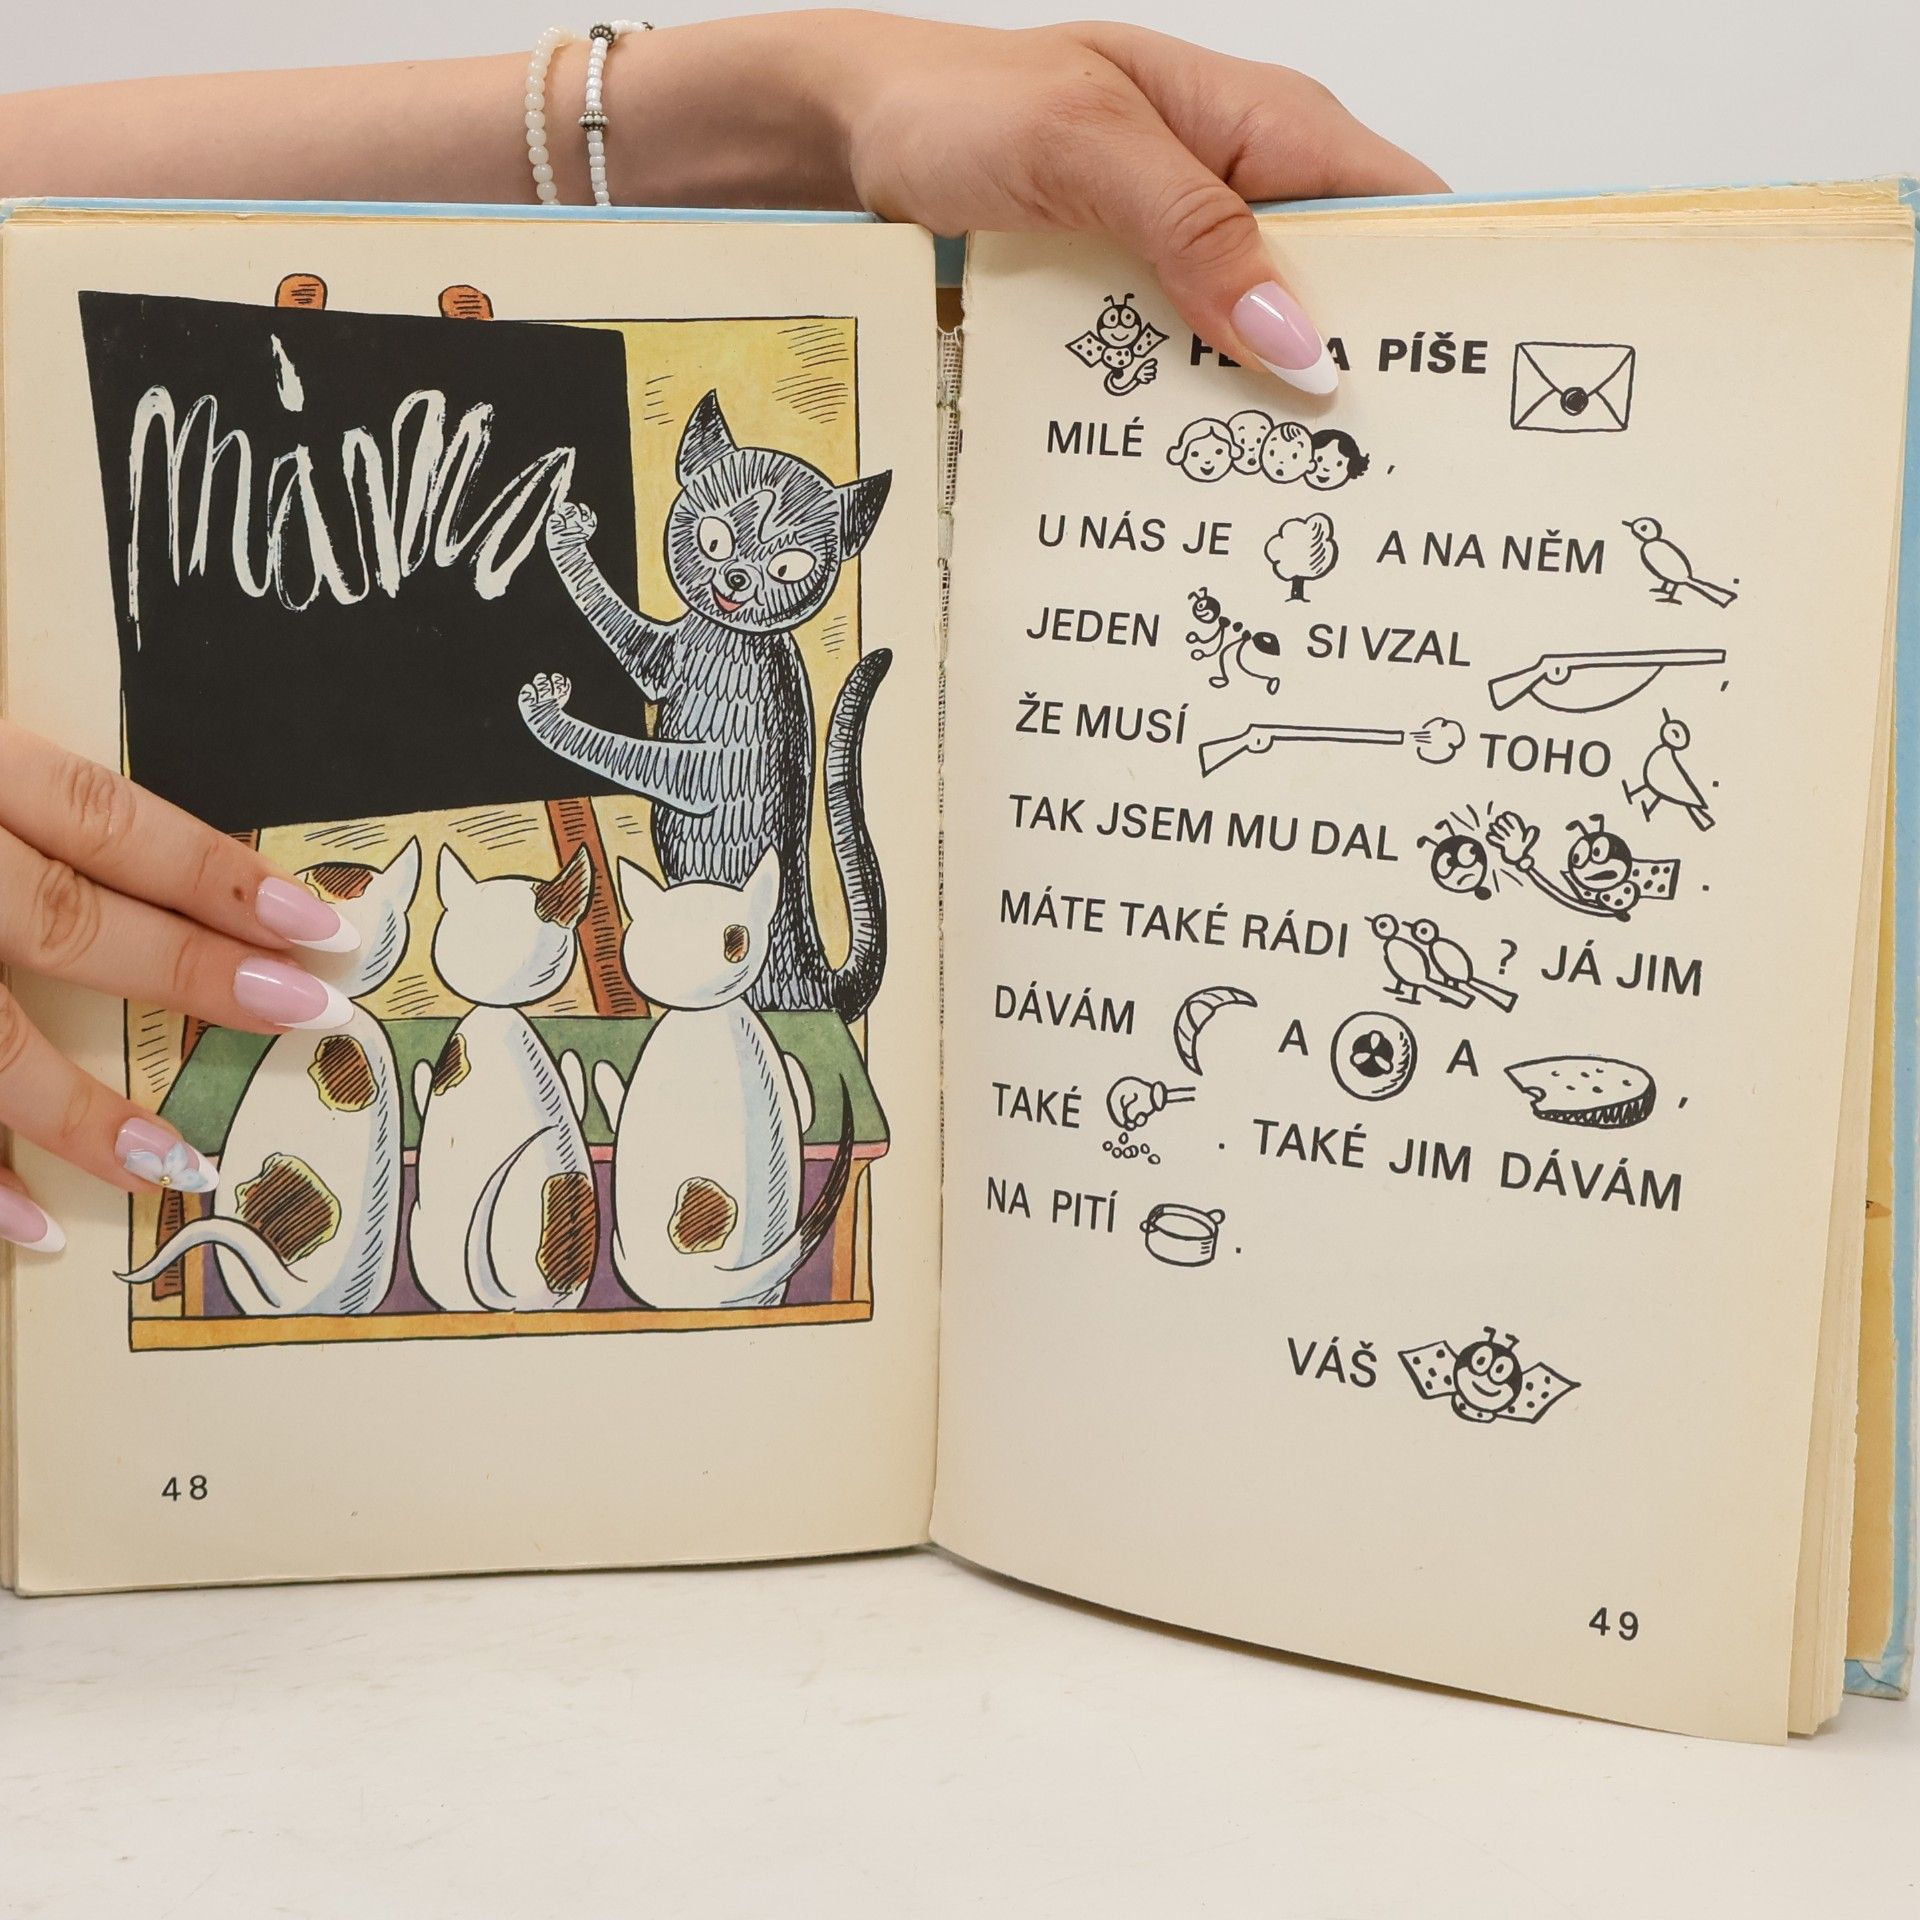 máma
48
PÍŠE
MILÉ ,
U NÁS JE A NA NĚM .
JEDEN SI VZAL ,
ŽE MUSÍ TOHO .
TAK JSEM MU DAL .
MÁTE TAKÉ RÁDI ? JÁ JIM
DÁVÁM A A ,
TAKÉ . TAKÉ JIM DÁVÁM
NA PITÍ .
VÁŠ
49